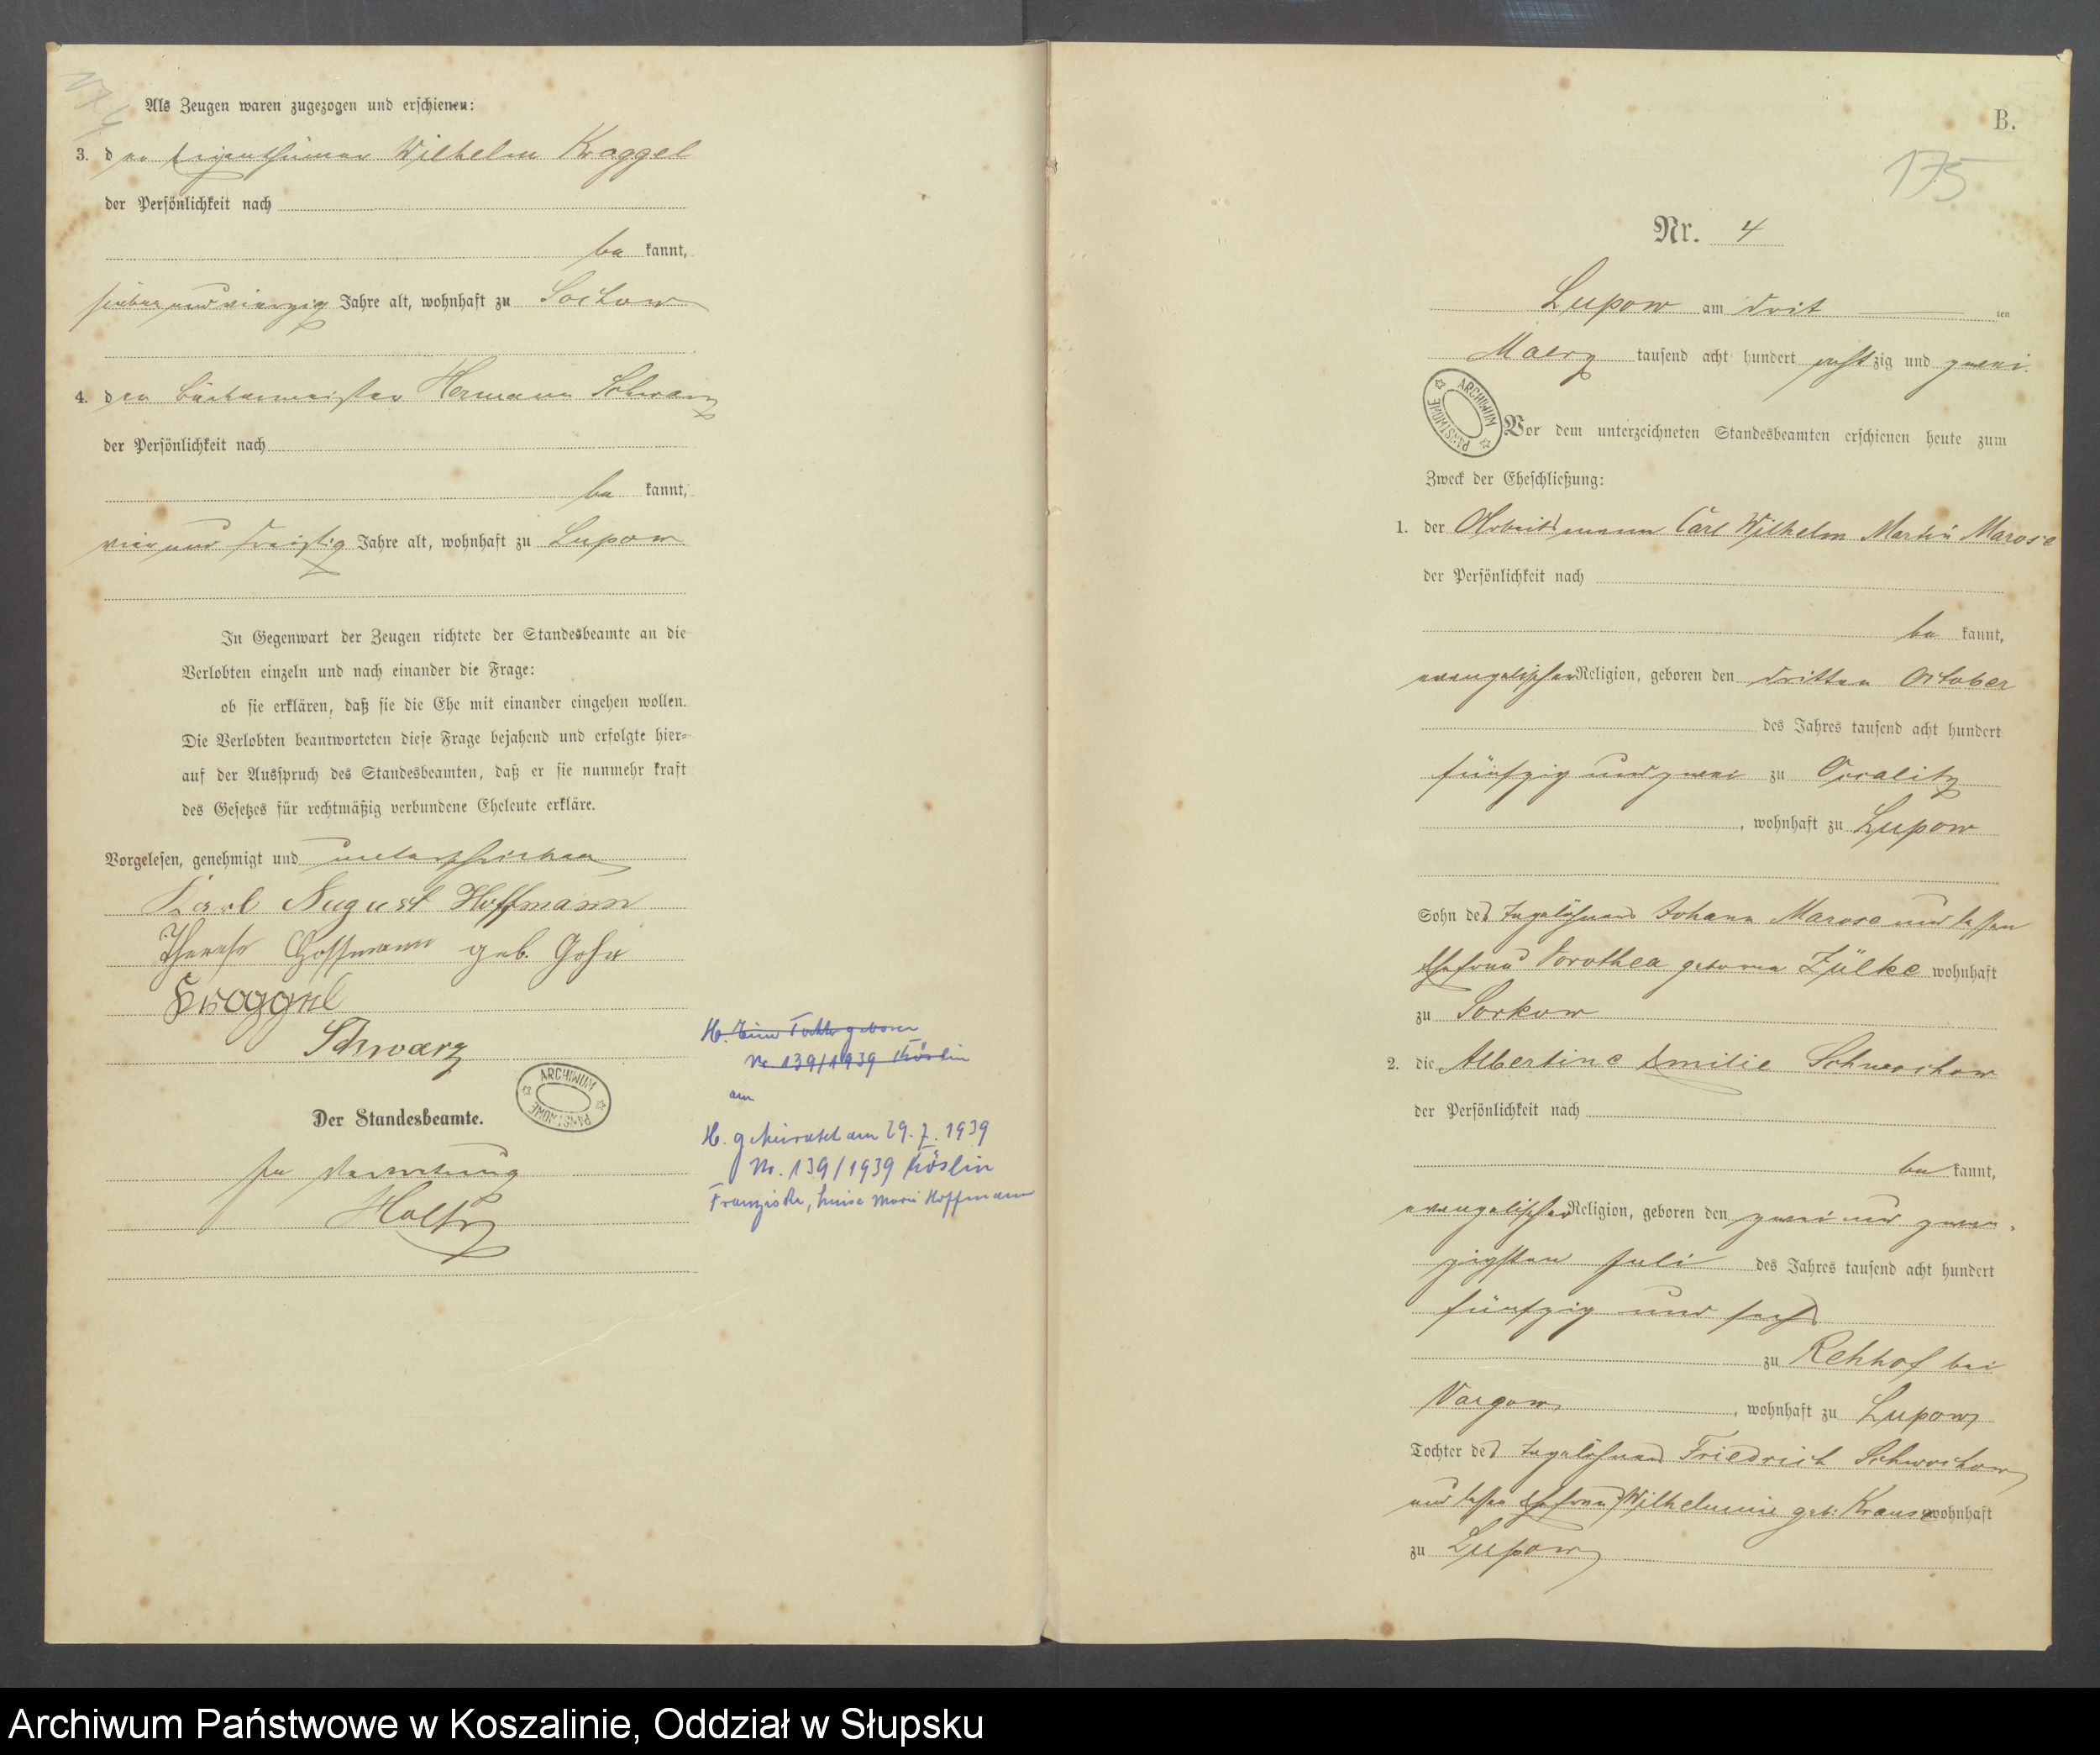 174
Als Zeugen waren zugezogen und erschienen:
3. der Eigenthümer Wilhelm Kroggel
der Persönlichkeit nach
be kannt,
sieben und vierzig Jahre alt, wohnhaft zu Sochow
4. der Bäckermeister Hermann Schwarz
der Persönlichkeit nach
be kannt,
vier und dreißig Jahre alt, wohnhaft zu Lupow
In Gegenwart der Zeugen richtete der Standesbeamte an die
Verlobten einzeln und nach einander die Frage:
ob sie erklären, daß sie die Ehe mit einander eingehen wollen.
Die Verlobten beantworteten diese Frage bejahend und erfolgte hier-
auf der Ausspruch des Standesbeamten, daß er sie nunmehr kraft
des Gesetzes für rechtmäßig verbundene Eheleute erkläre.
Vorgelesen, genehmigt und unterschrieben
Karl August Hoffmann
Therese Hoffmann geb. Gohr
Kroggel
Schwarz
Der Standesbeamte.
In Vertretung
ARCHIWUM PAŃSTWOWE
H. Eine Tochter geboren
Nr 139/1939 Köslin
am
H. geheiratet am 29.7.1939
Nr. 139/1939 Köslin
Franziska, Luise Marie Hoffmann
B.
175
Nr. 4
Lupow am drit ten
Maerz tausend acht hundert achtzig und zwei
ARCHIWUM PAŃSTWOWE
Vor dem unterzeichneten Standesbeamten erschienen heute zum
Zweck der Eheschließung:
1. der Arbeitsmann Carl Wilhelm Martin Marose
der Persönlichkeit nach
be kannt,
evangelischer Religion, geboren den dritten October
des Jahres tausend acht hundert
fünfzig und zwei zu
, wohnhaft zu Lupow
Sohn des Tagelöhners Johann Marose und dessen
Ehefrau Dorothea geborne Zülke wohnhaft
zu Sorkow
2. die Albertine Emilie Schwochow
der Persönlichkeit nach
be kannt,
evangelischer Religion, geboren den zwei und zwan-
zigsten Juli des Jahres tausend acht hundert
fünfzig und sechs
zu Rehhof bei
Vargow, wohnhaft zu Lupow
Tochter des Tagelöhners Friedrich Schwochow
und dessen Ehefrau Wilhelmine geb. Krause wohnhaft
zu Lupow
Archiwum Państwowe w Koszalinie, Oddział w Słupsku